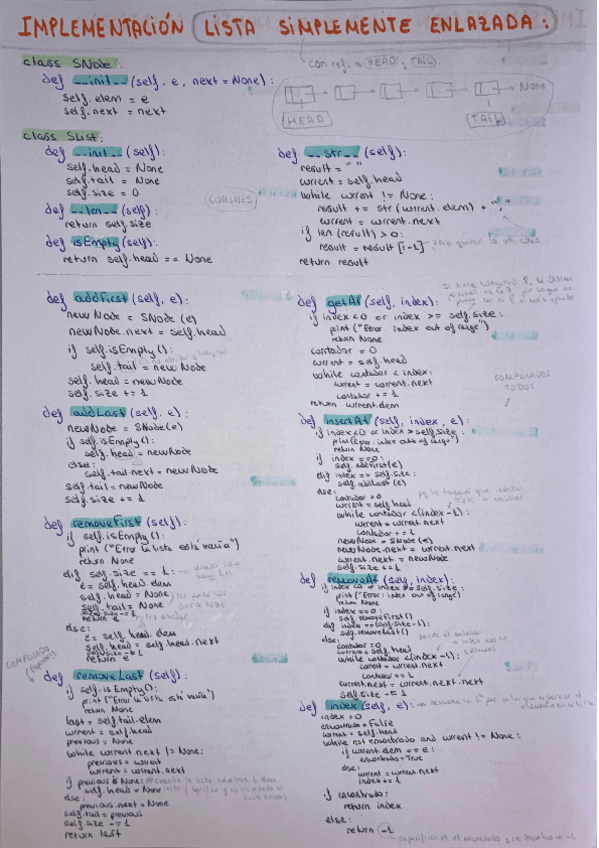 IMPLEMENTACIÓN LISTA SIMPLEMENTE ENLAZADA:
class SNode:
def __init__(self, e, next = None):
self.elem = e
self.next = next
con ref. a HEAD y TAIL
None
HEAD
TAIL
class SList:
def __init__(self):
self.head = None
self.tail = None
self.size = 0
def __len__(self):
return self.size
def isEmpty(self):
return self.head == None
COMUNES
def __str__(self):
result = ""
current = self.head
while current != None:
result += str(current.elem) + ","
current = current.next
if len(result) > 0:
result = result[:-1]
para quitar la últ. coma
return result
def addFirst(self, e):
newNode = SNode(e)
newNode.next = self.head
if self.isEmpty():
self.tail = newNode
self.head = newNode
self.size += 1
def addLast(self, e):
newNode = SNode(e)
if self.isEmpty():
self.head = newNode
else:
self.tail.next = newNode
self.tail = newNode
self.size += 1
def removeFirst(self):
if self.isEmpty():
print("Error la lista está vacía")
return None
elif self.size == 1:
e = self.head.elem
self.head = None
self.tail = None
self.size -= 1
return e
else:
e = self.head.elem
self.head = self.head.next
self.size -= 1
return e
COMPLICADA
def removeLast(self):
if self.isEmpty():
print("Error la lista está vacía")
return None
last = self.tail.elem
current = self.head
previous = None
while current.next != None:
previous = current
current = current.next
if previous is None:
self.head = None
else:
previous.next = None
self.tail = previous
self.size -= 1
return last
def getAt(self, index):
if index < 0 or index >= self.size:
print("Error: index out of range")
return None
contador = 0
current = self.head
while contador < index:
current = current.next
contador += 1
return current.elem
COMPLICADOS
TODOS
def insertAt(self, index, e):
if index < 0 or index > self.size:
print("Error: index out of range")
return None
if index == 0:
self.addFirst(e)
elif index == self.size:
self.addLast(e)
else:
contador = 0
current = self.head
while contador < (index-1):
current = current.next
contador += 1
newNode = SNode(e)
newNode.next = current.next
current.next = newNode
self.size += 1
def removeAt(self, index):
if index < 0 or index >= self.size:
print("Error: index out of range")
return None
if index == 0:
self.removeFirst()
elif index == (self.size-1):
self.removeLast()
else:
contador = 0
current = self.head
while contador < (index-1):
current = current.next
contador += 1
current.next = current.next.next
self.size -= 1
def index(self, e):
index = 0
encontrado = False
current = self.head
while not encontrado and current != None:
if current.elem == e:
encontrado = True
else:
current = current.next
index += 1
if encontrado:
return index
else:
return -1